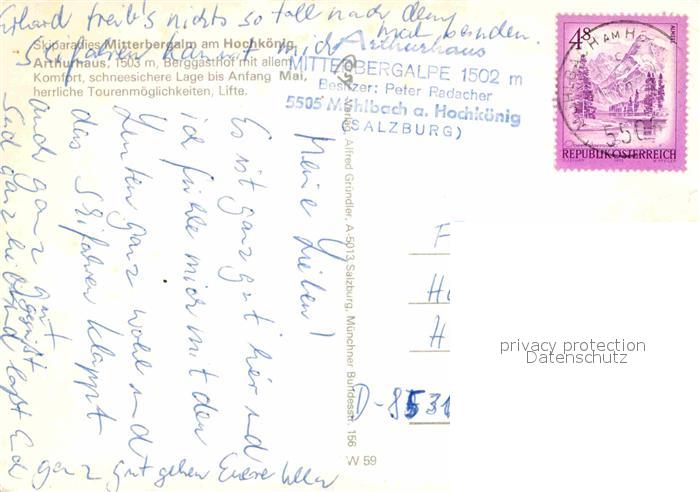 Skiparadies Mitterbergalm am Hochkönig
Arthurhaus, 1503 m, Berggasthof mit allem
Komfort, schneesichere Lage bis Anfang Mai,
herrliche Tourenmöglichkeiten, Lifte.
Arthurhaus
MITTERBERGALPE 1502 m
Besitzer: Peter Radacher
5505 Mühlbach a. Hochkönig
(SALZBURG)
4S
REPUBLIK ÖSTERREICH
AM HO
5505
Verlag Alfred Gründler, A-5013 Salzburg, Münchner Bundesstr. 156
W 59
Meine Lieben!
Es ist ganz gut hier und
ich fühle mich mit den
Leuten ganz wohl und
das Skifahren klappt
auch ganz gut
Seid ganz lieb gegrüßt
und laßt Euch
ganz gut gehen Eure
nichts so toll nach dem
Skifahren
F
H
H
D-8531
privacy protection
Datenschutz